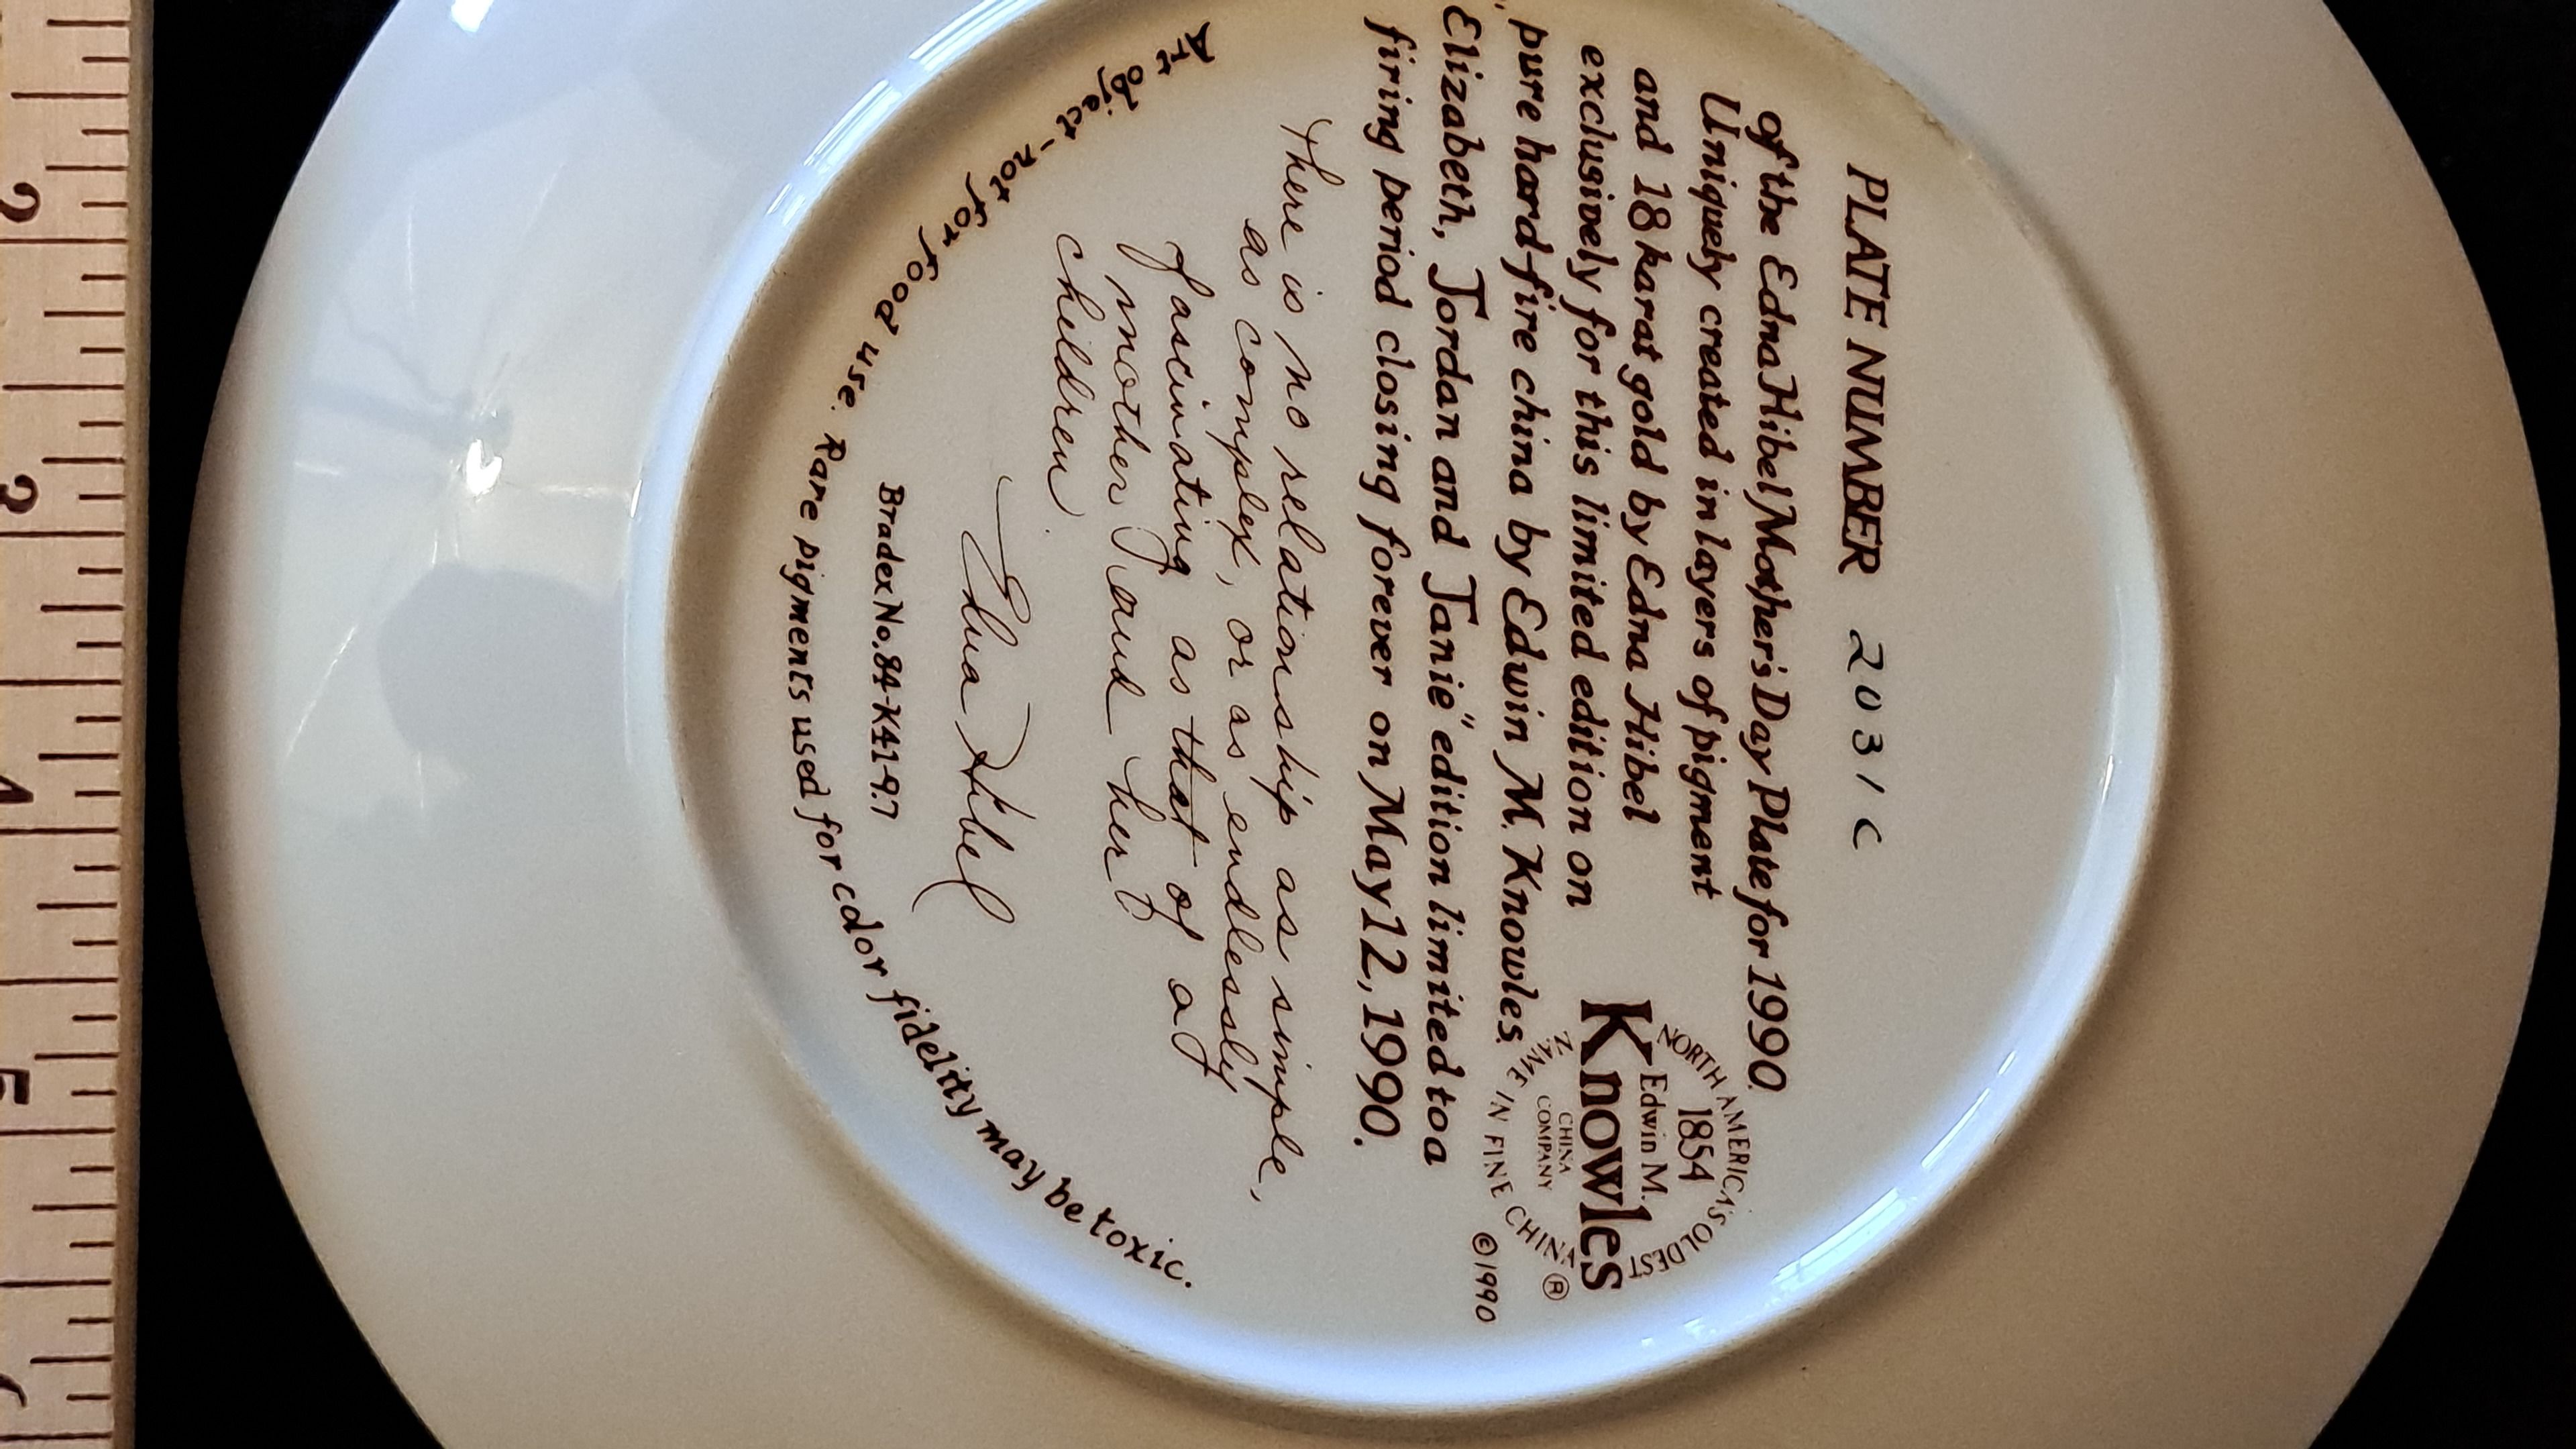 PLATE NUMBER 2031C
of the Edna Hibel Mother's Day Plate for 1990.
Uniquely created in layers of pigment
and 18 karat gold by Edna Hibel
exclusively for this limited edition on
pure hard-fire china by Edwin M. Knowles.
Elizabeth, Jordan and Janie" edition limited to a
firing period closing forever on May 12, 1990.
NORTH AMERICA'S OLDEST
1854
Edwin M.
Knowles
CHINA
COMPANY
NAME IN FINE CHINA ®
©1990
There is no relationship as simple,
as complex, or as endlessly
fascinating as that of a
mother and her
children.
Edna Hibel
Bradex No. 84-K41-9.7
Art object-not for food use. Rare pigments used for color fidelity may be toxic.
2
3
4
5